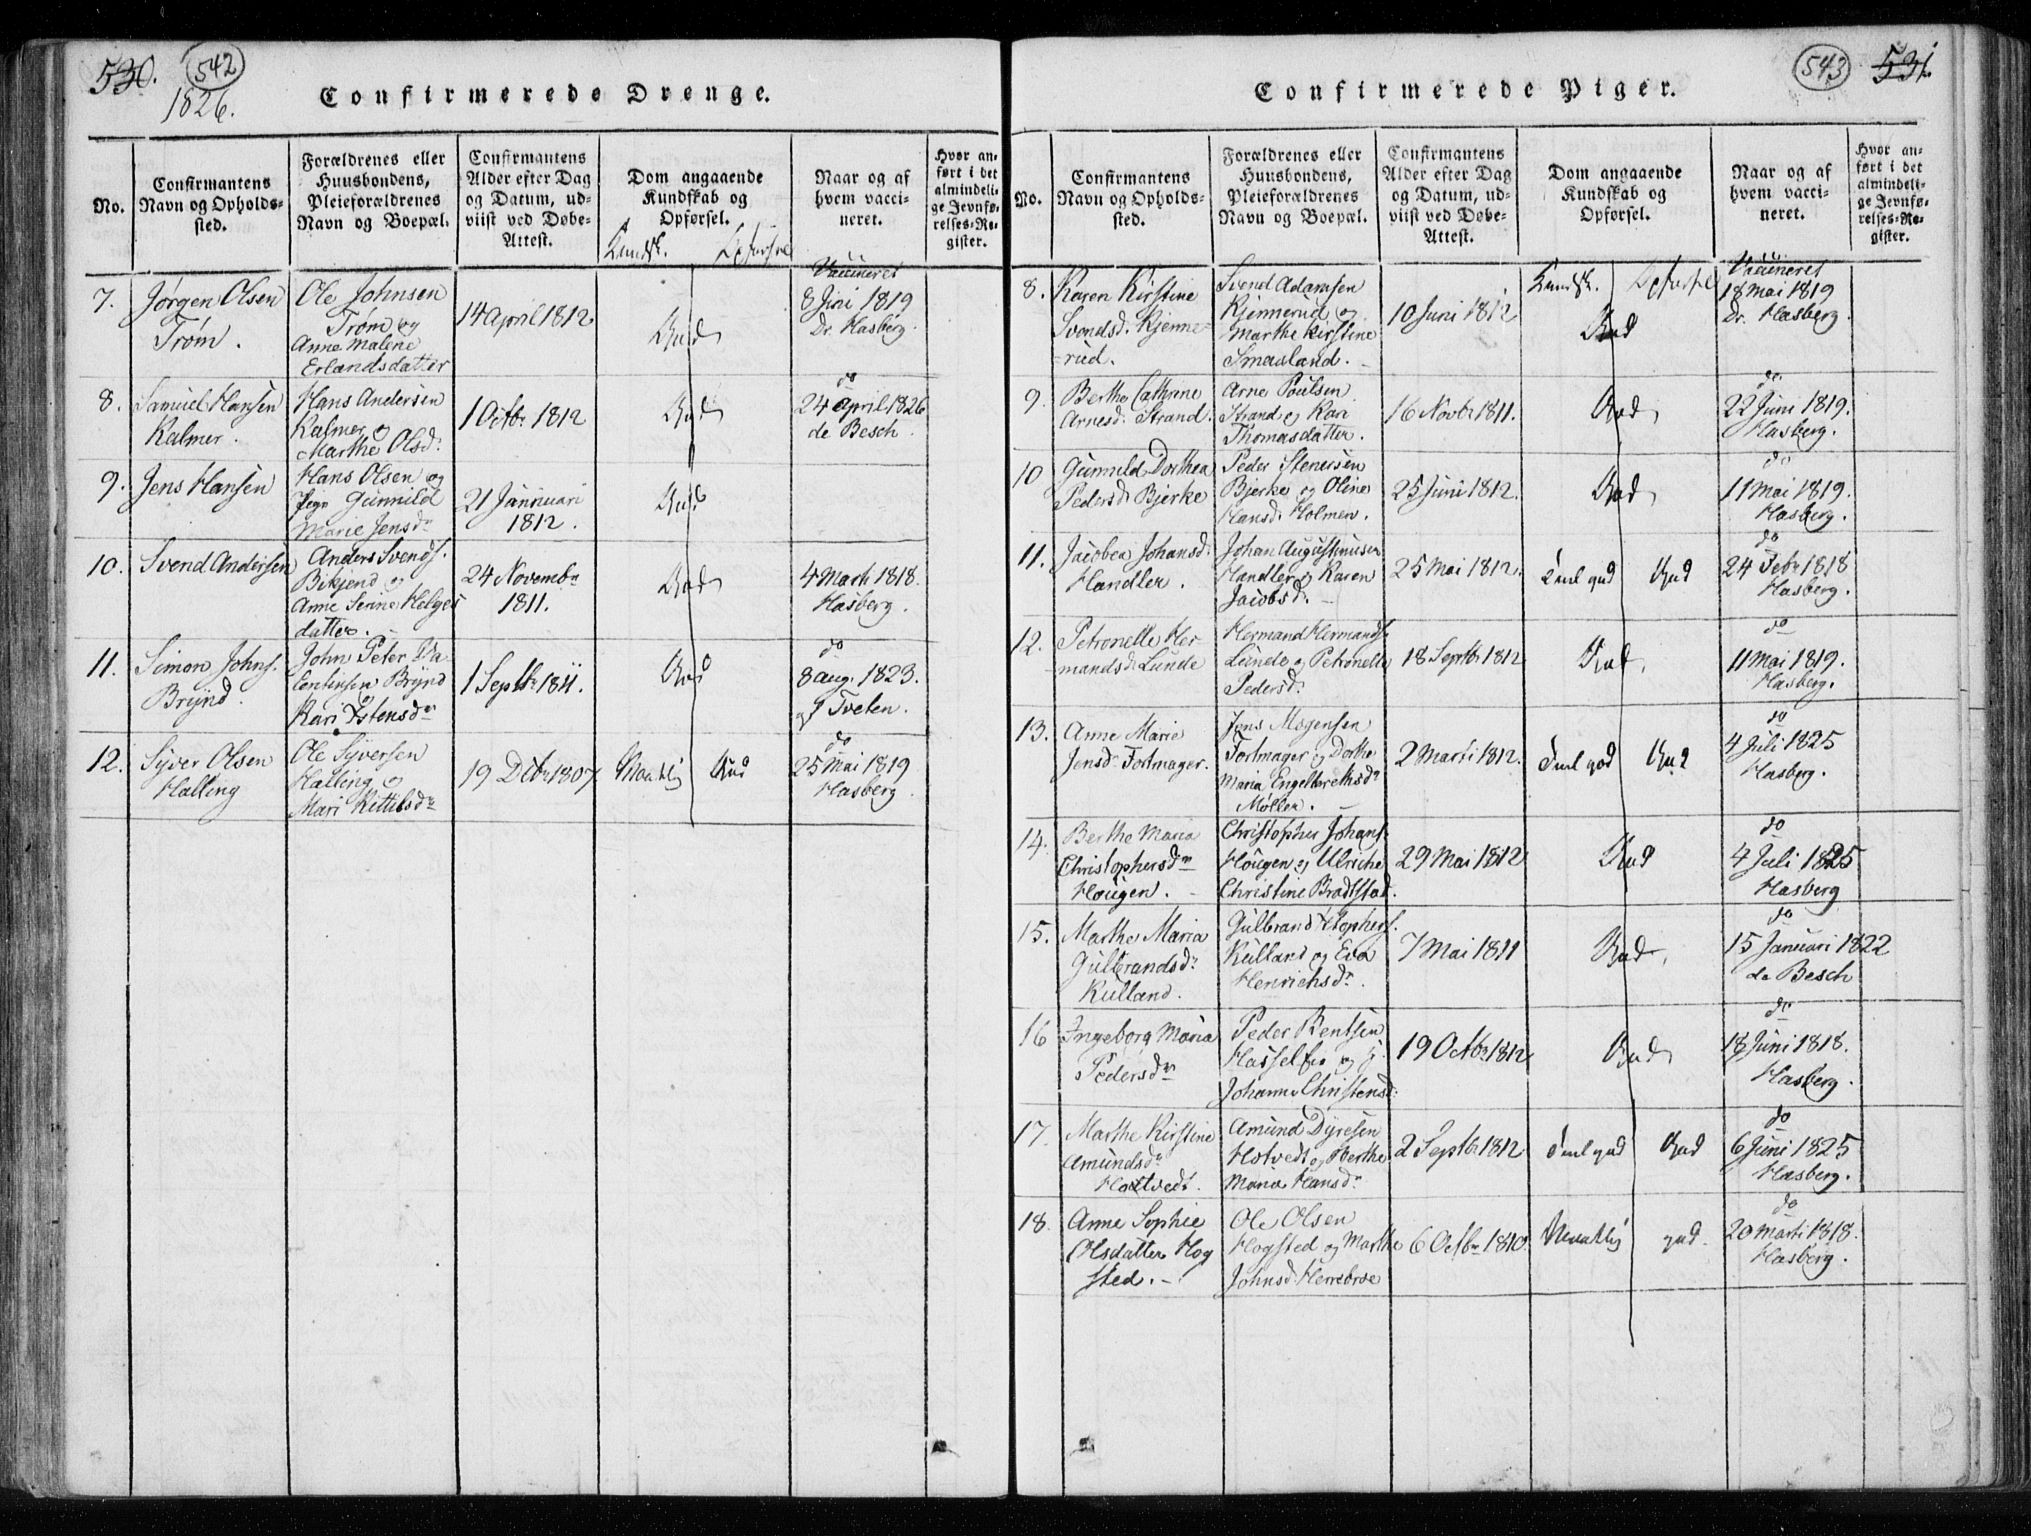 530.
542
1826.
Confirmerede Drenge.
No.
Confirmantens
Navn og Opholds-
sted.
Forældrenes eller
Huusbondens,
Pleieforældrenes
Navn og Boepæl.
Confirmantens
Alder efter Dag
og Datum, ud-
viist ved Døbe-
Attest.
Dom angaaende
Kundskab og
Opførsel.
Kundsk. Opførsel
Naar og af
hvem vacci-
neret.
Hvor an-
ført i det
almindeli-
ge Jevnfø-
relses-Re-
gister.
7.
Jørgen Olsen
Trøm.
Ole Johnsen
Trøm og
Anne Malene
Erlandsdatter
14 April 1812
Gud
Vaccineret
8 Juni 1819
Dr. Hasberg.
8.
Samuel Hansen
Kalmer.
Hans Andersen
Kalmer og
Marthe Olsd.
1 Octbr 1812
Gud
do
24 April 1826
de Besch.
9.
Jens Hansen
Hans Olsen og
Pige Gunnild
Marie Jensdr
21 Januari
1812.
Gud
10.
Svend Andersen
Anders Svends.
Bikjend og
Anne Senne Helges
datter.
24 Novembr
1811.
Gud
4 Marti 1818.
Hasberg.
11.
Simon Johns.
Brynd.
John Peter
Brynd
Kari Ostensdr
1 Septbr 1811.
Gud
do
8 Aug. 1823.
af Tveten.
12.
Syver Olsen
Halling
Ole Syversen
Halling og
Mari Kittilsdr
19 Dcbr 1807
Maadelig Gud
do
25 Mai 1819
Hasberg.
543
531
Confirmerede Piger.
No.
Confirmantens
Navn og Opholds-
sted.
Forældrenes eller
Huusbondens,
Pleieforældrenes
Navn og Boepæl.
Confirmantens
Alder efter Dag
og Datum, ud-
viist ved Døbe-
Attest.
Dom angaaende
Kundskab og
Opførsel.
Naar og af
hvem vacci-
neret.
Hvor an-
ført i det
almindeli-
ge Jevnfø-
relses-Re-
gister.
8.
Karen Kirstine
Svendsd. Kjenne-
-rud.
Svend Adamsen
Kjennerud og
Marthe Kirstine
Smaaland.
10 Juni 1812
Kundsk. Opførsel
Gud
Vaccineret
18 Mai 1819
Dr. Hasberg.
9.
Berthe Cathrine
Arnesd. Strand.
Arne Poulsen
Strand og Kari
Thomasdatter.
16 Novbr 1811.
Gud
do
22 Juni 1819.
Hasberg.
10
Gunnild Dorthea
Pedersd. Bjerke
Peder Stenersen
Bjerke og Oline
Hansd. Holmen.
25 Juni 1812.
Gud
do
11 Mai 1819.
Hasberg.
11.
Jacobea Johansd.
Handler.
Johan Augustinusen
Handler og Karen
Jacobsd.
25 Mai 1812.
Gud
do
24 Febr 1818
Hasberg.
12.
Petronelle Her
mandsd. Lunde
Hermand Hermands.
Lunde og Petronelle
Pedersd.
18 Septbr 1812
Gud.
do
11 Mai 1819.
Hasberg.
13.
Anne Marie
Jensdr Formager.
Jens Mogensen
Formager og Dorthe
Maria Engelbrethsdr
Møller.
2 Marti 1812.
Gud
do
4 Juli 1825
Hasberg.
14.
Berthe Maria
Christophersdr
Hougen.
Christopher Johans.
Hougen og Ulriche
Christine Bradstad.
29 Mai 1812
Gud
do
4 Juli 1825
Hasberg
15.
Marthe Maria
Gulbrandsdr
Kulland.
Gulbrand Xstophers.
Kulland og Eva
Henrichsdr.
7 Mai 1811
Gud.
do
15 Januari 1822
de Besch
16
Ingeborg Maria
Pedersdr
Peder Bentsen
Johanne Christensd.
19 Octbr 1812
Gud
do
18 Juni 1818.
Hasberg.
17.
Marthe Kirstine
Amundsdr
Hotvedt.
Amund Dyresen
Hotvedt og Berthe
Maria Hansdr
2 Septbr 1812
Gud
do
6 Juni 1825
Hasberg.
18.
Anne Sophie
Olsdatter Hog
sted.
Ole Olsen
Hogsted og Marthe
Johnsd. Herrebroe
6 Octbr 1810.
Maadelig gud.
do
20 Marti 1818.
Hasberg.